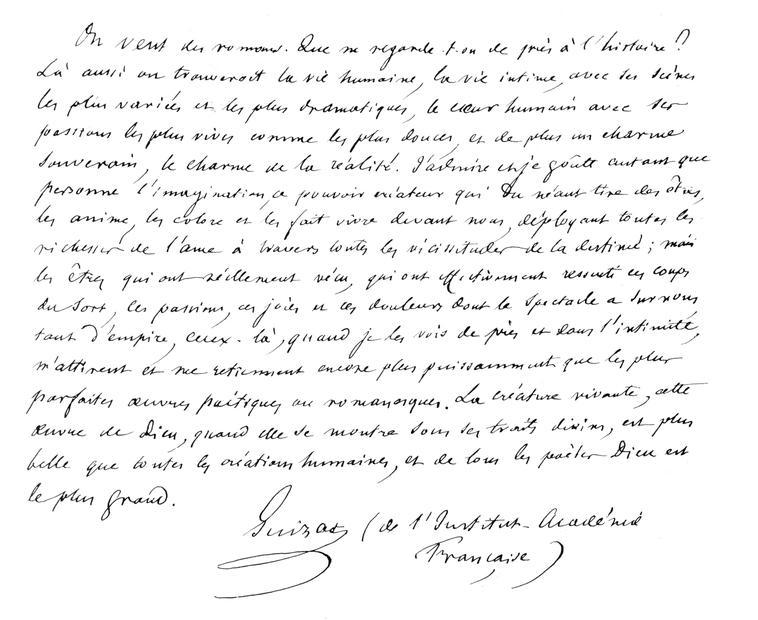 On veut des romans. Que ne regarde-t-on de près à l'histoire?
Là aussi on trouveroit la vie humaine, la vie intime, avec ses scènes
les plus variées et les plus dramatiques, le cœur humain avec ses
passions les plus vives comme les plus douces, et de plus un charme
souverain, le charme de la réalité. J'admire et je goûte autant que
personne l'imagination, ce pouvoir créateur qui du néant tire des êtres,
les anime, les colore et les fait vivre devant nous, déployant toutes les
richesses de l'âme à travers toutes les vicissitudes de la destinée; mais
les êtres qui ont réellement vécu, qui ont effectivement ressenti ces coups
du sort, ces passions, ces joies et ces douleurs dont le spectacle a sur nous
tant d'empire, ceux-là, quand je les vois de près et dans l'intimité,
m'attirent et me retiennent encore plus puissamment que les plus
parfaites œuvres poétiques ou romanesques. La créature vivante, cette
œuvre de Dieu, quand elle se montre sous ses traits divins, est plus
belle que toutes les créations humaines, et de tous les poètes Dieu est
le plus grand.
Guizot (de l'Institut-Académie
Française)